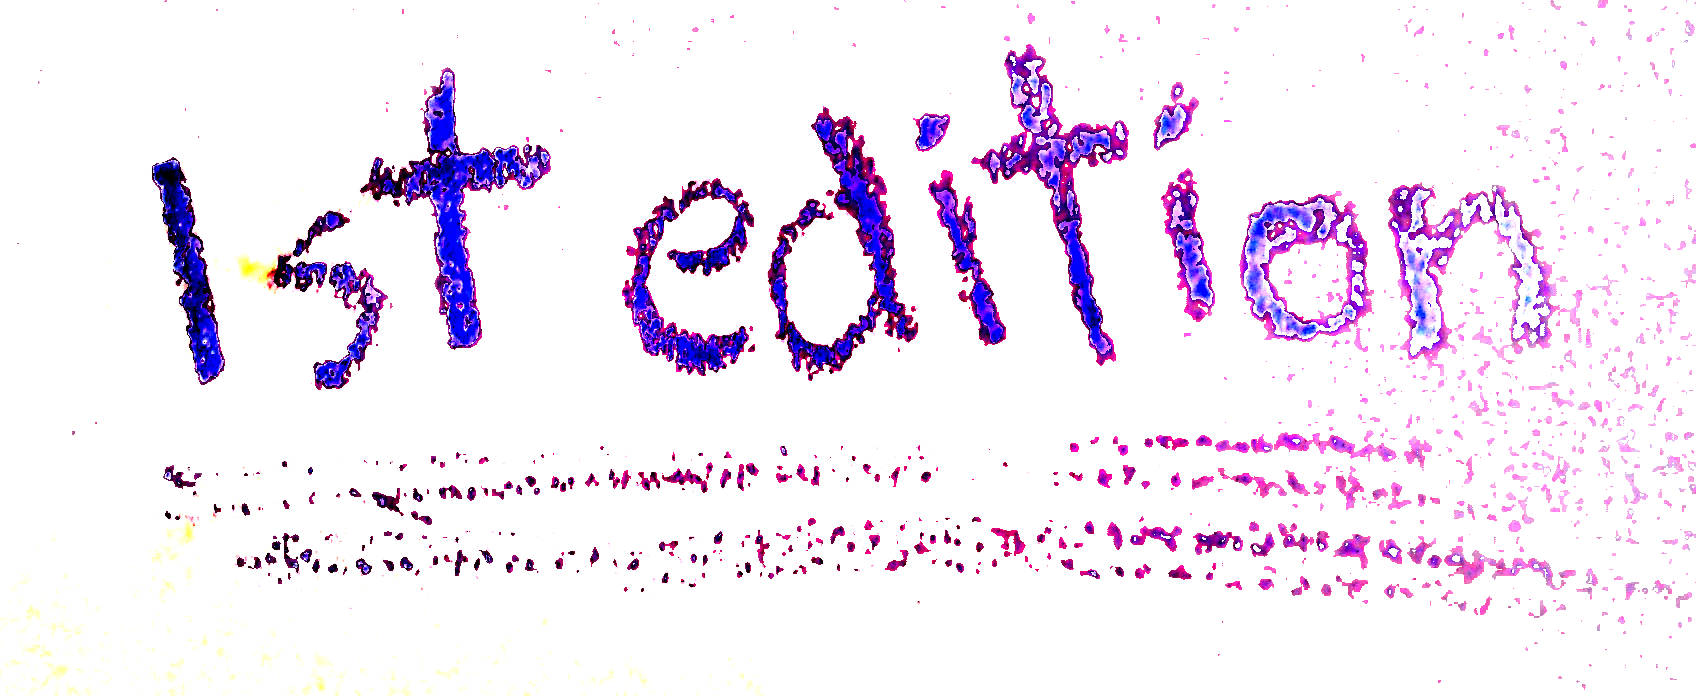 1st edition